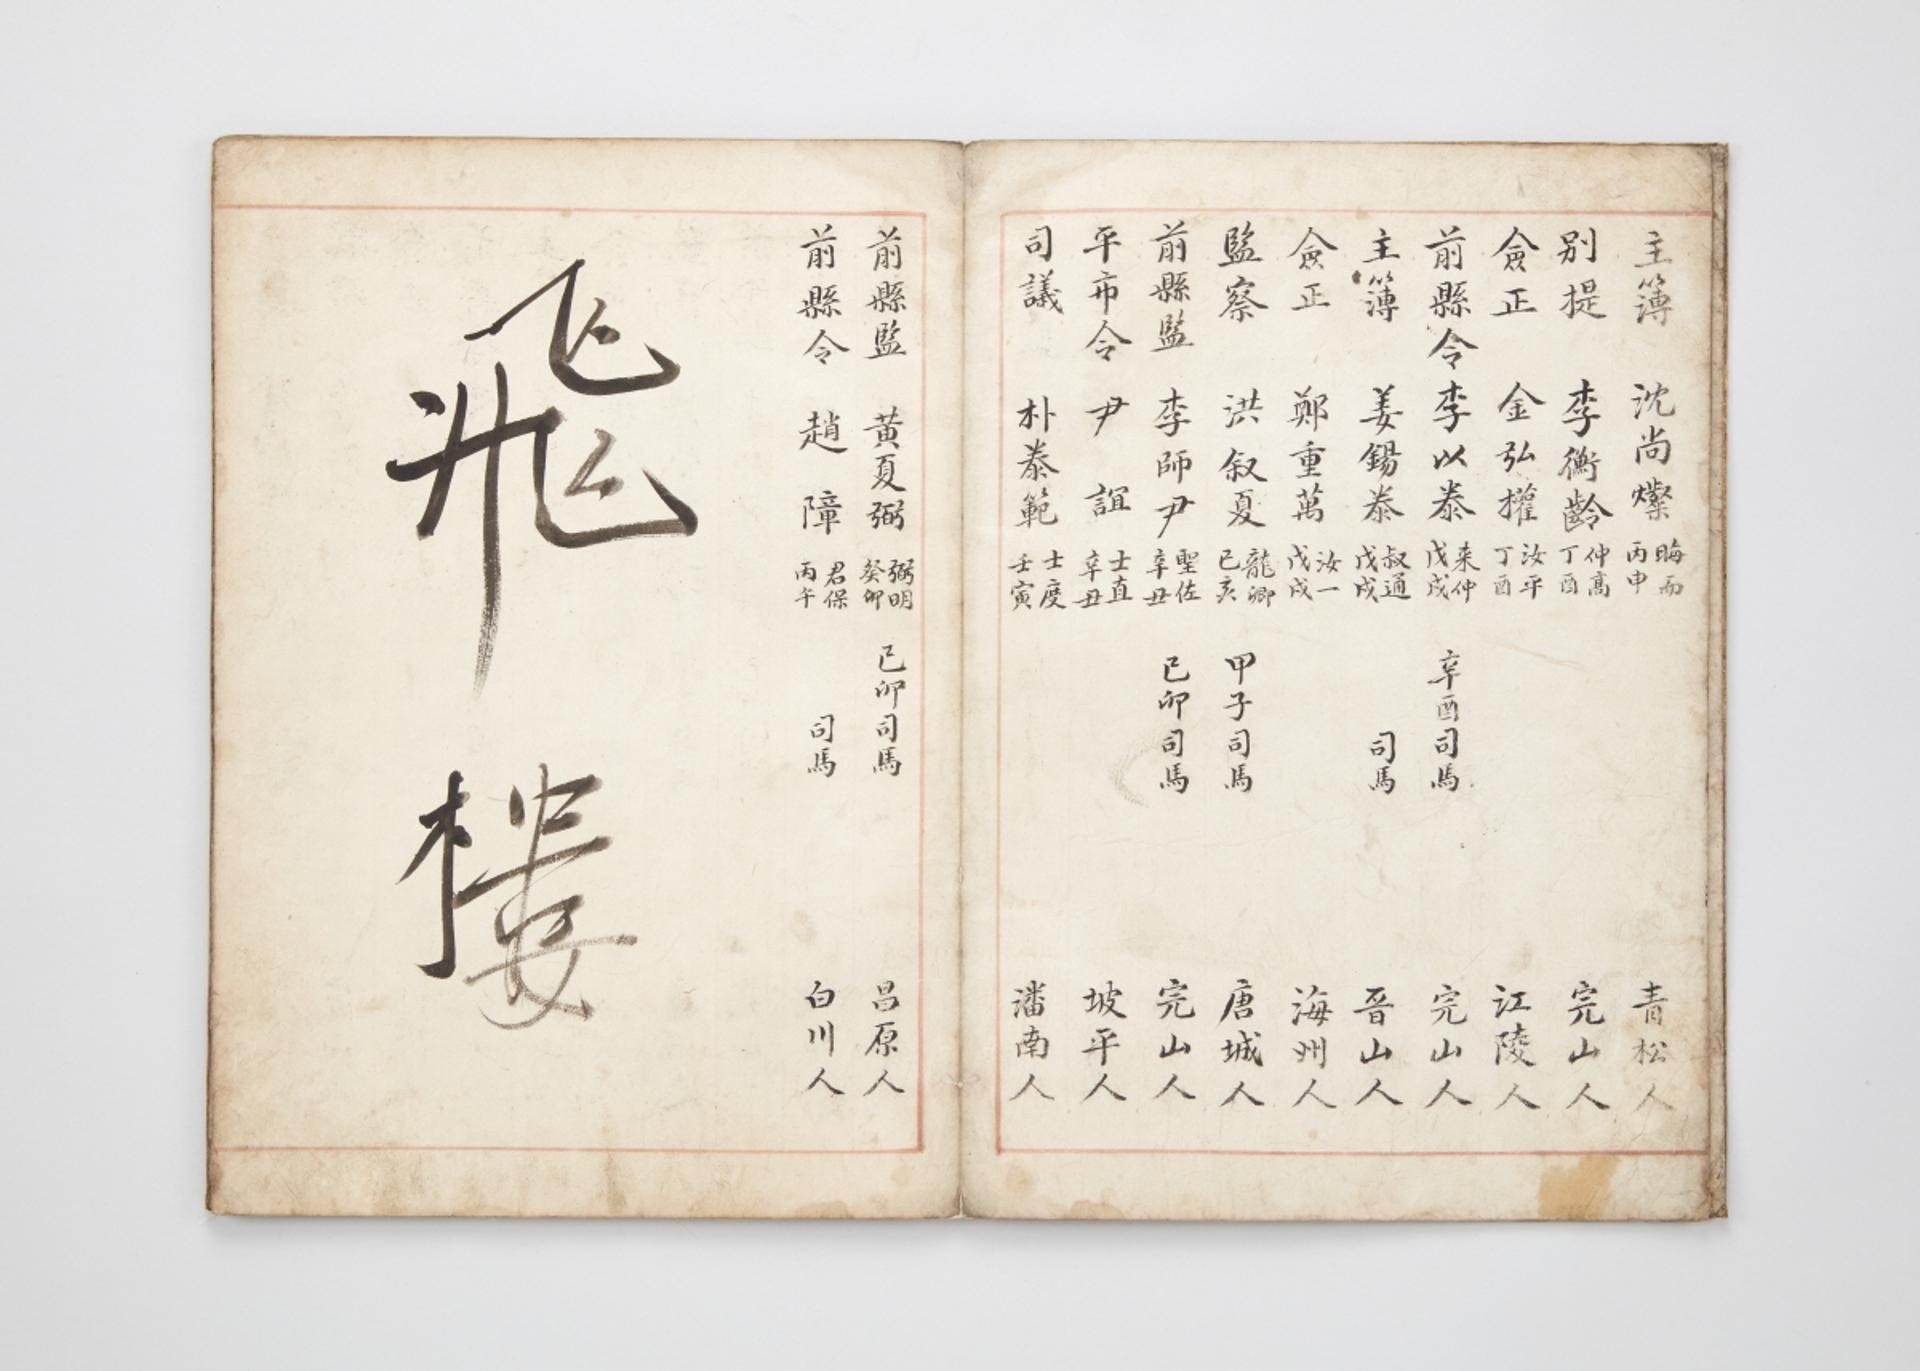 主簿 沈尚燦 晦而 丙申 青松人
別提 李衡齡 仲高 丁酉 完山人
僉正 金弘權 汝平 丁酉 江陵人
前縣令 李以泰 来仲 戊戌 辛酉司馬 完山人
主簿 姜錫泰 叔通 戊戌 司馬 晋山人
僉正 鄭重萬 汝一 戊戌 海州人
監察 洪叙夏 龍卿 己亥 甲子司馬 唐城人
前縣監 李師尹 聖佐 辛丑 己卯司馬 完山人
平市令 尹誼 士直 辛丑 坡平人
司議 朴泰範 士度 壬寅 潘南人
前縣監 黃夏弼 弼明 癸卯 己卯司馬 昌原人
前縣令 趙障 君保 丙午 司馬 白川人
飛樓